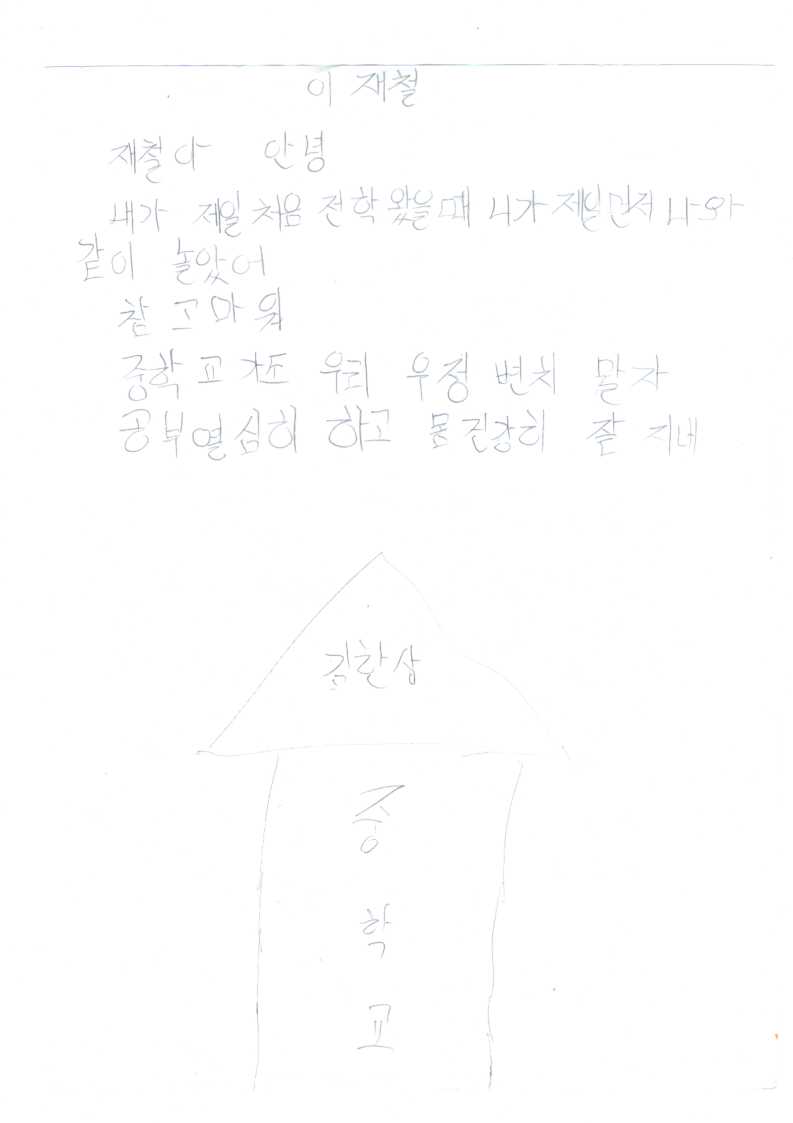 이 재철
재철아 안녕
내가 제일 처음 전학 왔을때 니가 제일먼저 나와
같이 놀았어
참 고마워
중학교 가도 우리 우정 변치 말자
공부열심히 하고 몸건강히 잘 지네
김환삼
중
학
교